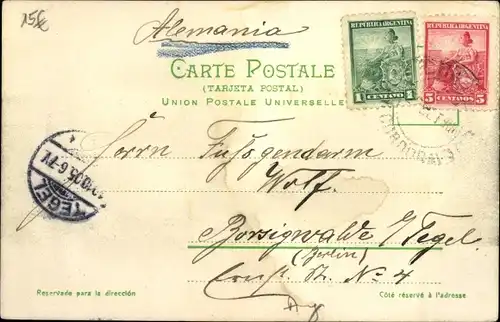 155
Alemania
CARTE POSTALE
(TARJETA POSTAL)
UNION POSTALE UNIVERSELLE
REPUBLICA ARGENTINA
1 CENTAVO 1
REPUBLICA ARGENTINA
5 CENTAVOS 5
TEGEL
Herrn Fußgendarm
Wolf.
Borsigwalde b/Tegel.
(Berlin)
Ernst Str. No 4
Reservado para la dirección
Côté réservé à l'adresse